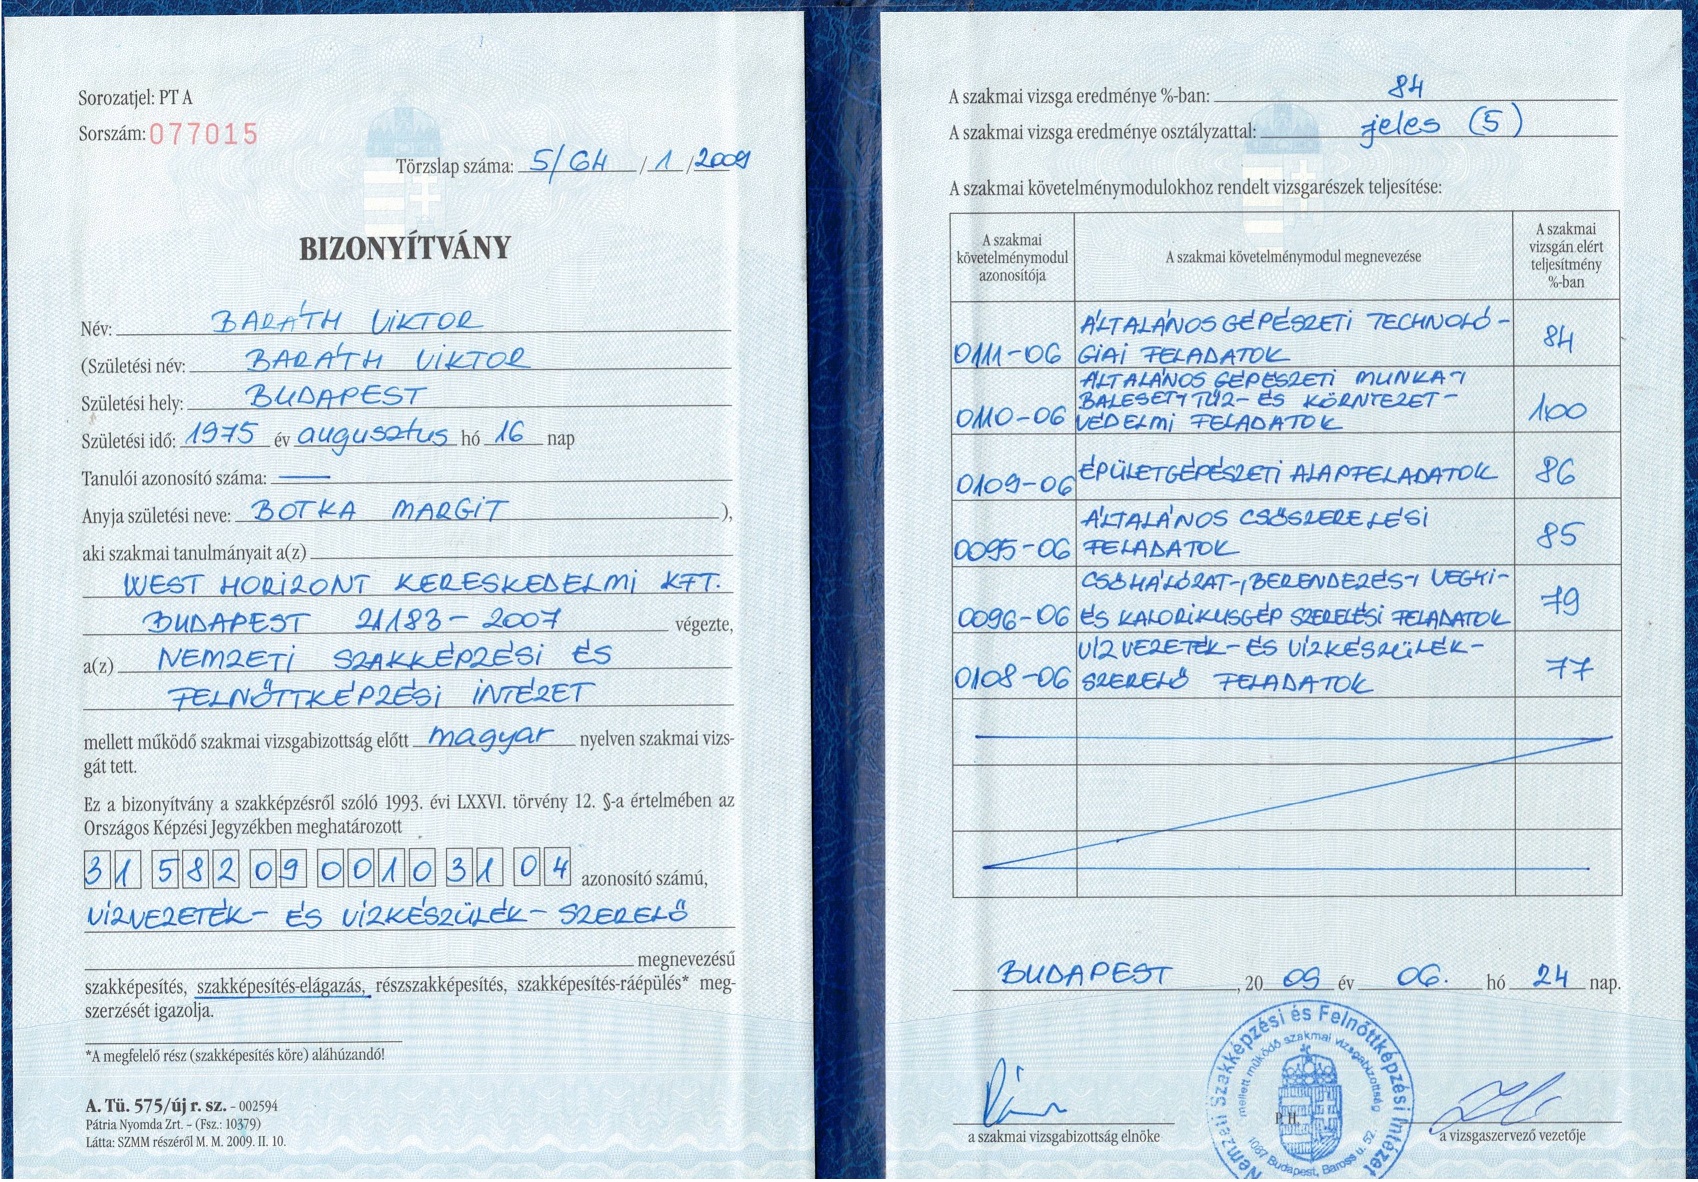 Sorozatjel: PT A
Sorszám: 077015
Törzslap száma: 5/GH / 1 / 2009
BIZONYÍTVÁNY
Név: BARÁTH VIKTOR
(Születési név: BARÁTH VIKTOR
Születési hely: BUDAPEST
Születési idő: 1975 év augusztus hó 16 nap
Tanulói azonosító száma: —
Anyja születési neve: BOTKA MARGIT ),
aki szakmai tanulmányait a(z)
WEST HORIZONT KERESKEDELMI KFT.
BUDAPEST 21183-2007 végezte,
a(z) NEMZETI SZAKKÉPZÉSI ÉS
FELNŐTTKÉPZÉSI INTÉZET
mellett működő szakmai vizsgabizottság előtt magyar nyelven szakmai vizs-
gát tett.
Ez a bizonyítvány a szakképzésről szóló 1993. évi LXXVI. törvény 12. §-a értelmében az
Országos Képzési Jegyzékben meghatározott
31 582 09 0010 31 04 azonosító számú,
VÍZVEZETÉK- ÉS VÍZKÉSZÜLÉK-SZERELŐ
megnevezésű
szakképesítés, szakképesítés-elágazás, részszakképesítés, szakképesítés-ráépülés* meg-
szerzését igazolja.
*A megfelelő rész (szakképesítés köre) aláhúzandó!
A. Tü. 575/új r. sz. - 002594
Pátria Nyomda Zrt. – (Fsz.: 10379)
Látta: SZMM részéről M. M. 2009. II. 10.
A szakmai vizsga eredménye %-ban: 84
A szakmai vizsga eredménye osztályzattal: jeles (5)
A szakmai követelménymodulokhoz rendelt vizsgarészek teljesítése:
A szakmai
követelménymodul
azonosítója
A szakmai követelménymodul megnevezése
A szakmai
vizsgán elért
teljesítmény
%-ban
0111-06 ÁLTALÁNOS GÉPÉSZETI TECHNOLÓ-
GIAI FELADATOK 84
0110-06 ÁLTALÁNOS GÉPÉSZETI MUNKA-,
BALESET-, TŰZ- ÉS KÖRNYEZET-
VÉDELMI FELADATOK 100
0109-06 ÉPÜLETGÉPÉSZETI ALAPFELADATOK 86
0095-06 ÁLTALÁNOS CSŐSZERELÉSI
FELADATOK 85
0096-06 CSŐHÁLÓZAT-, BERENDEZÉS-, VEGYI-
ÉS KALORIKUSGÉP SZERELÉSI FELADATOK 79
0108-06 VÍZVEZETÉK- ÉS VÍZKÉSZÜLÉK-
SZERELŐ FELADATOK 77
BUDAPEST, 20 09 év 06. hó 24 nap.
Nemzeti Szakképzési és Felnőttképzési Intézet
mellett működő szakmai vizsgabizottság
1087 Budapest, Baross u. 52.
P. H.
a szakmai vizsgabizottság elnöke
a vizsgaszervező vezetője